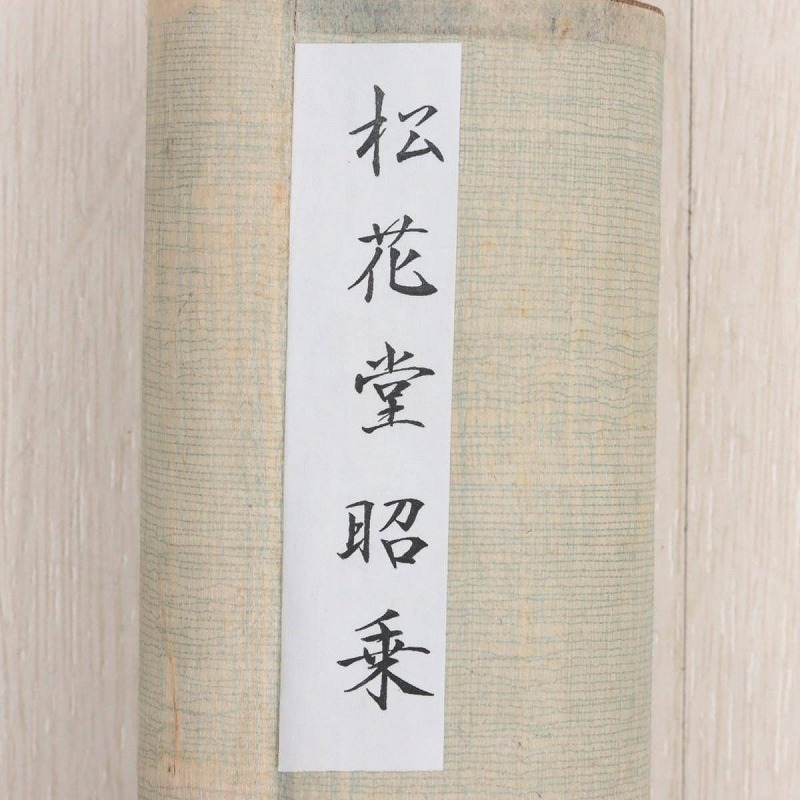 松花堂昭乗